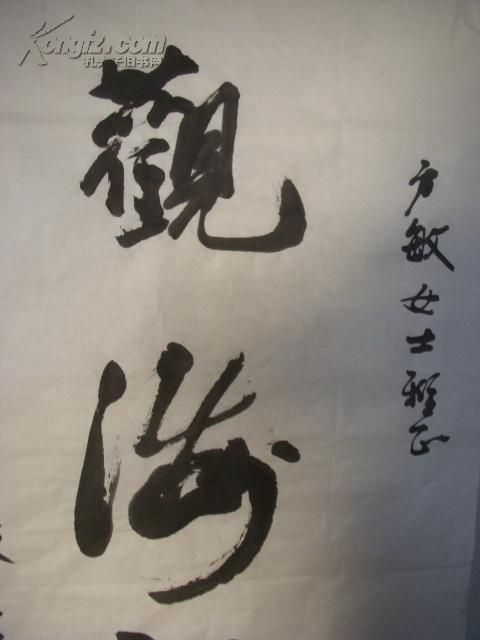 Kongfz.com
孔夫子旧书网
方敏女士雅正
觀海